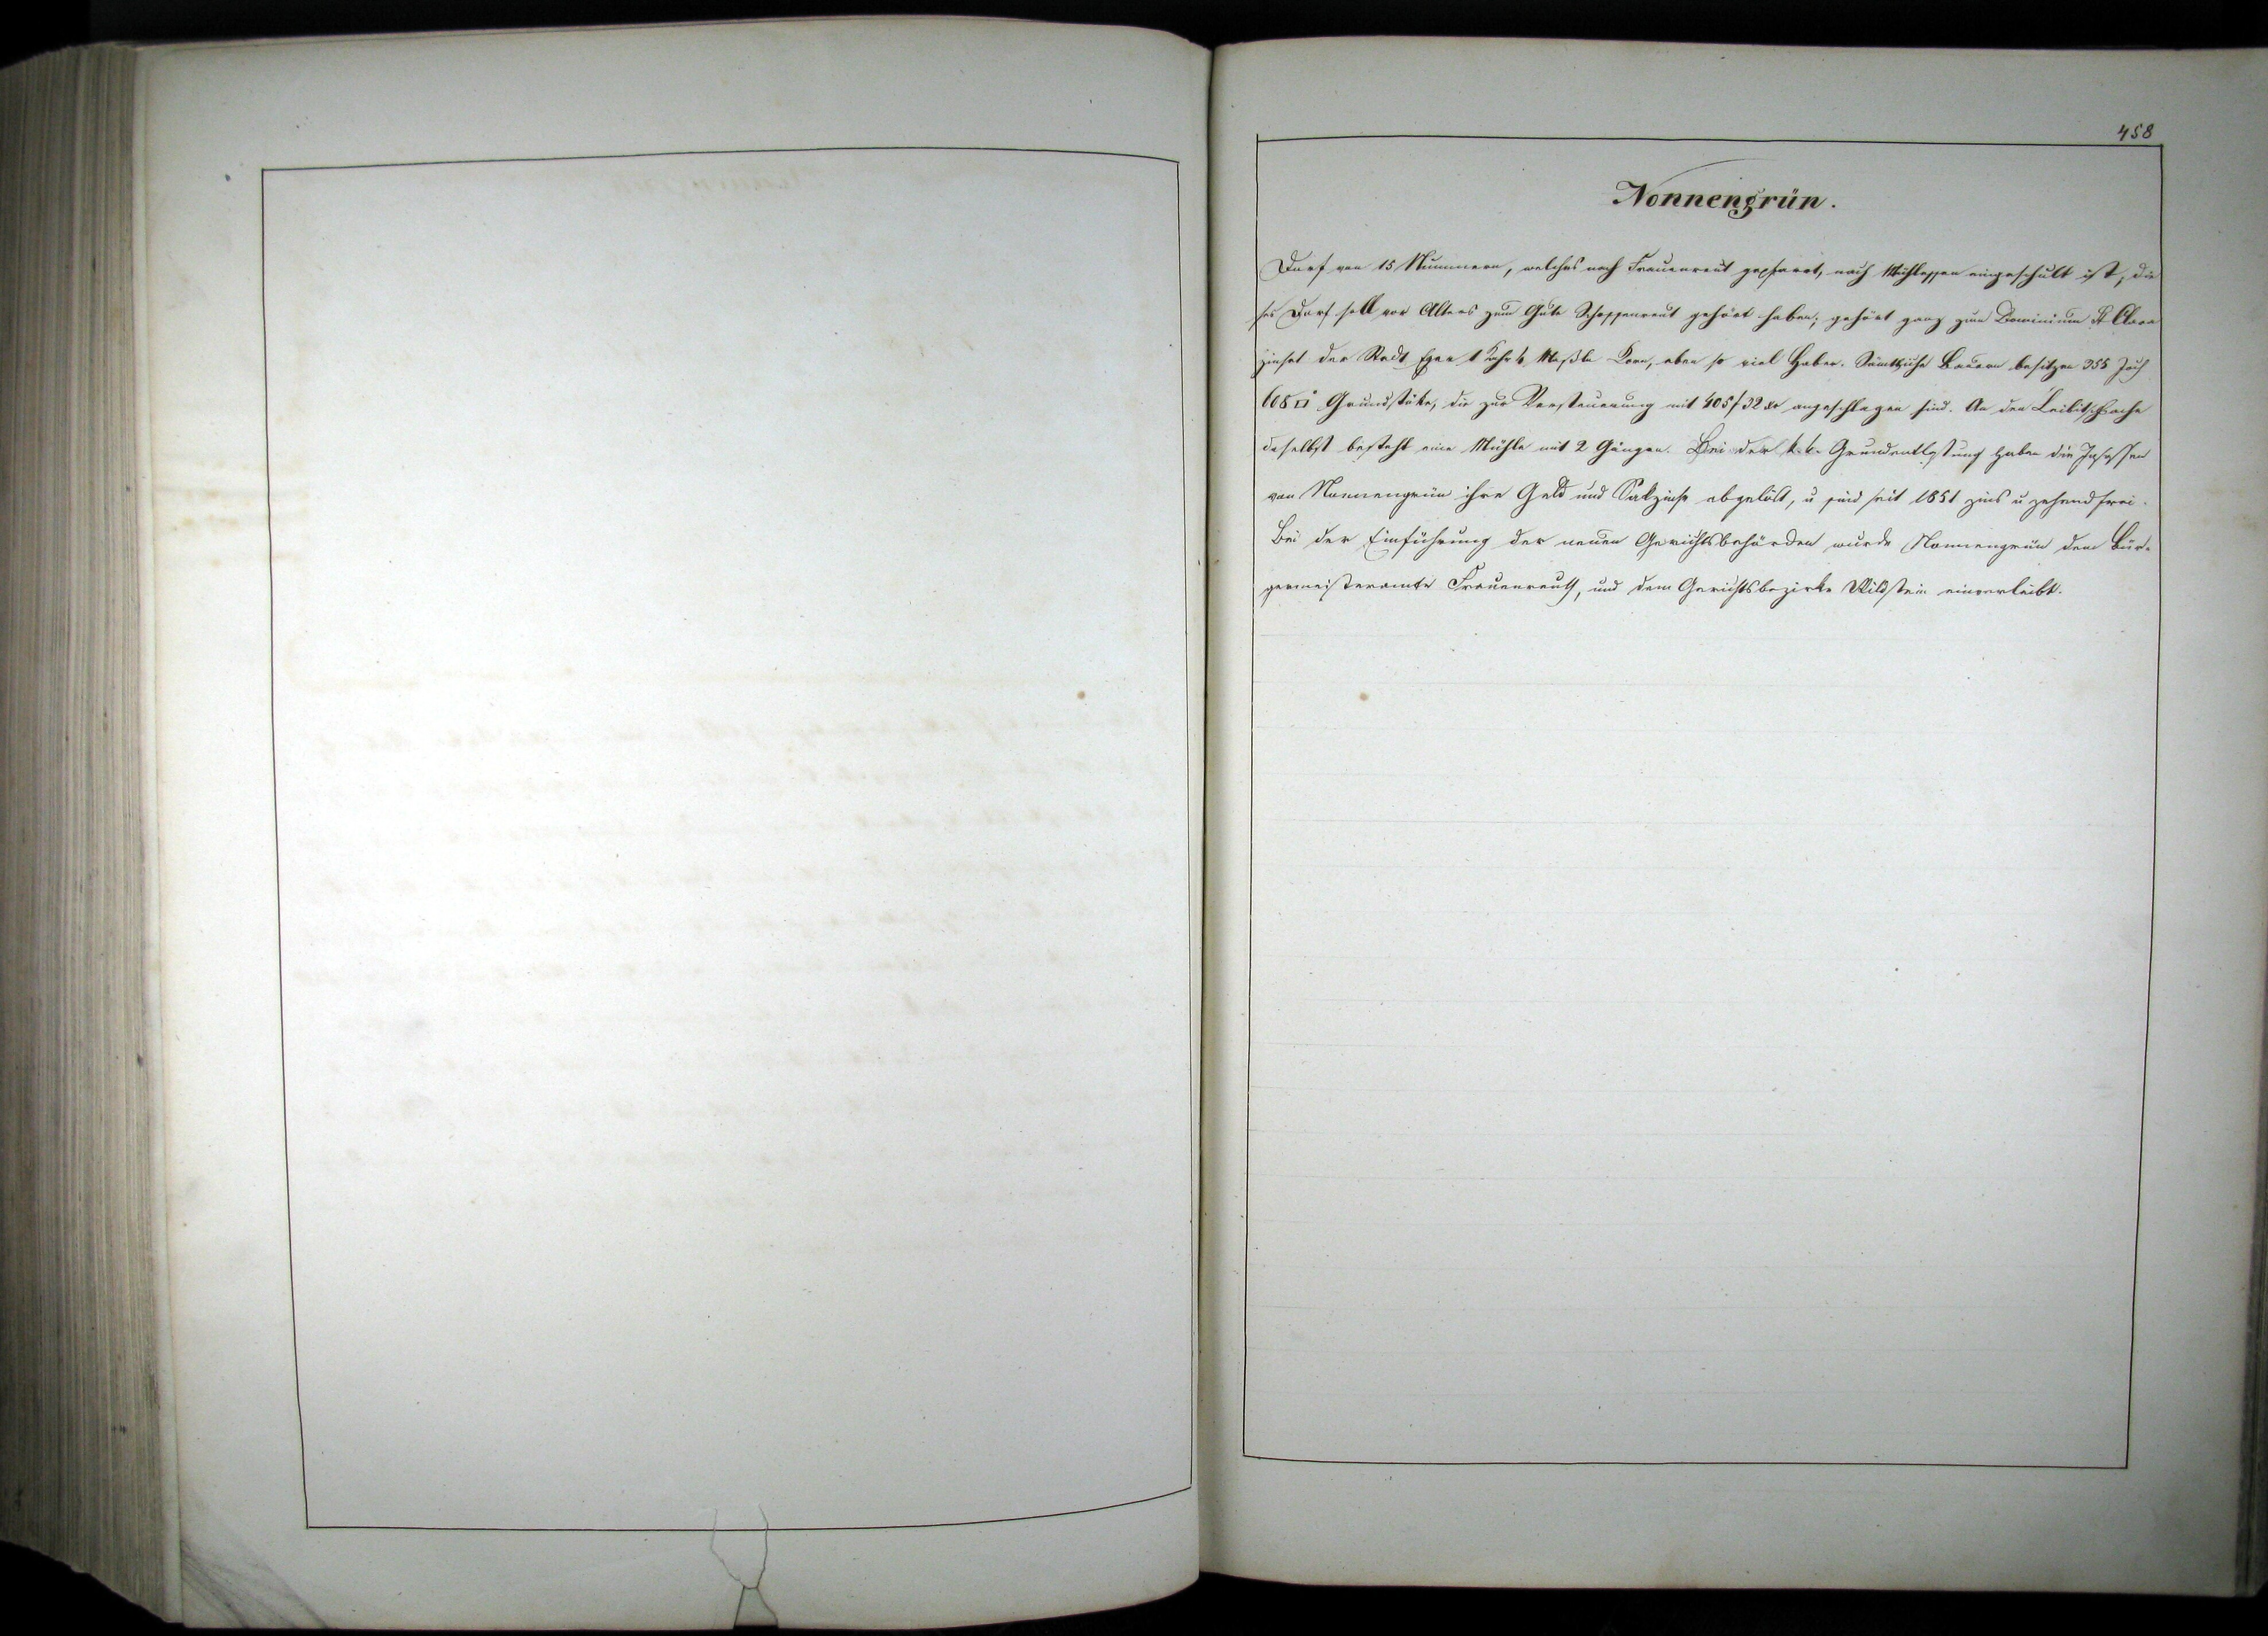 458
Nonnengrün.
Dorf von 15 Nummern, welches nach Frauenreut gepfarrt, nach Mühlessen eingeschult ist, die
ses Dorf soll vor Alters zum Gute Schoppenreut gehört haben; gehört ganz zum Dominium St Clara
zinset der Stadt Eger 1 Kahr 4 Meßle Korn, eben so viel Haber. Sämtliche Bauern besitzen 355 Joch
608 □° Grundstüke, die zur Versteuerung mit 405 f 32 xr angeschlagen sind. An den Leibitschbache
daselbst besteht eine Mühle mit 2 Gängen. Bei der k. k. Grundentlastung haben die Insassen
von Nonnengrün ihre Geld und Sakzinse abgelöst, u sind seit 1851 zins u zehendfrei.
Bei der Einführung der neuen Gerichtsbehörden wurde Nonnengrün dem Bür-
germeisteramte Frauenreuth, und dem Gerichtsbezirke Wildstein einverleibt.